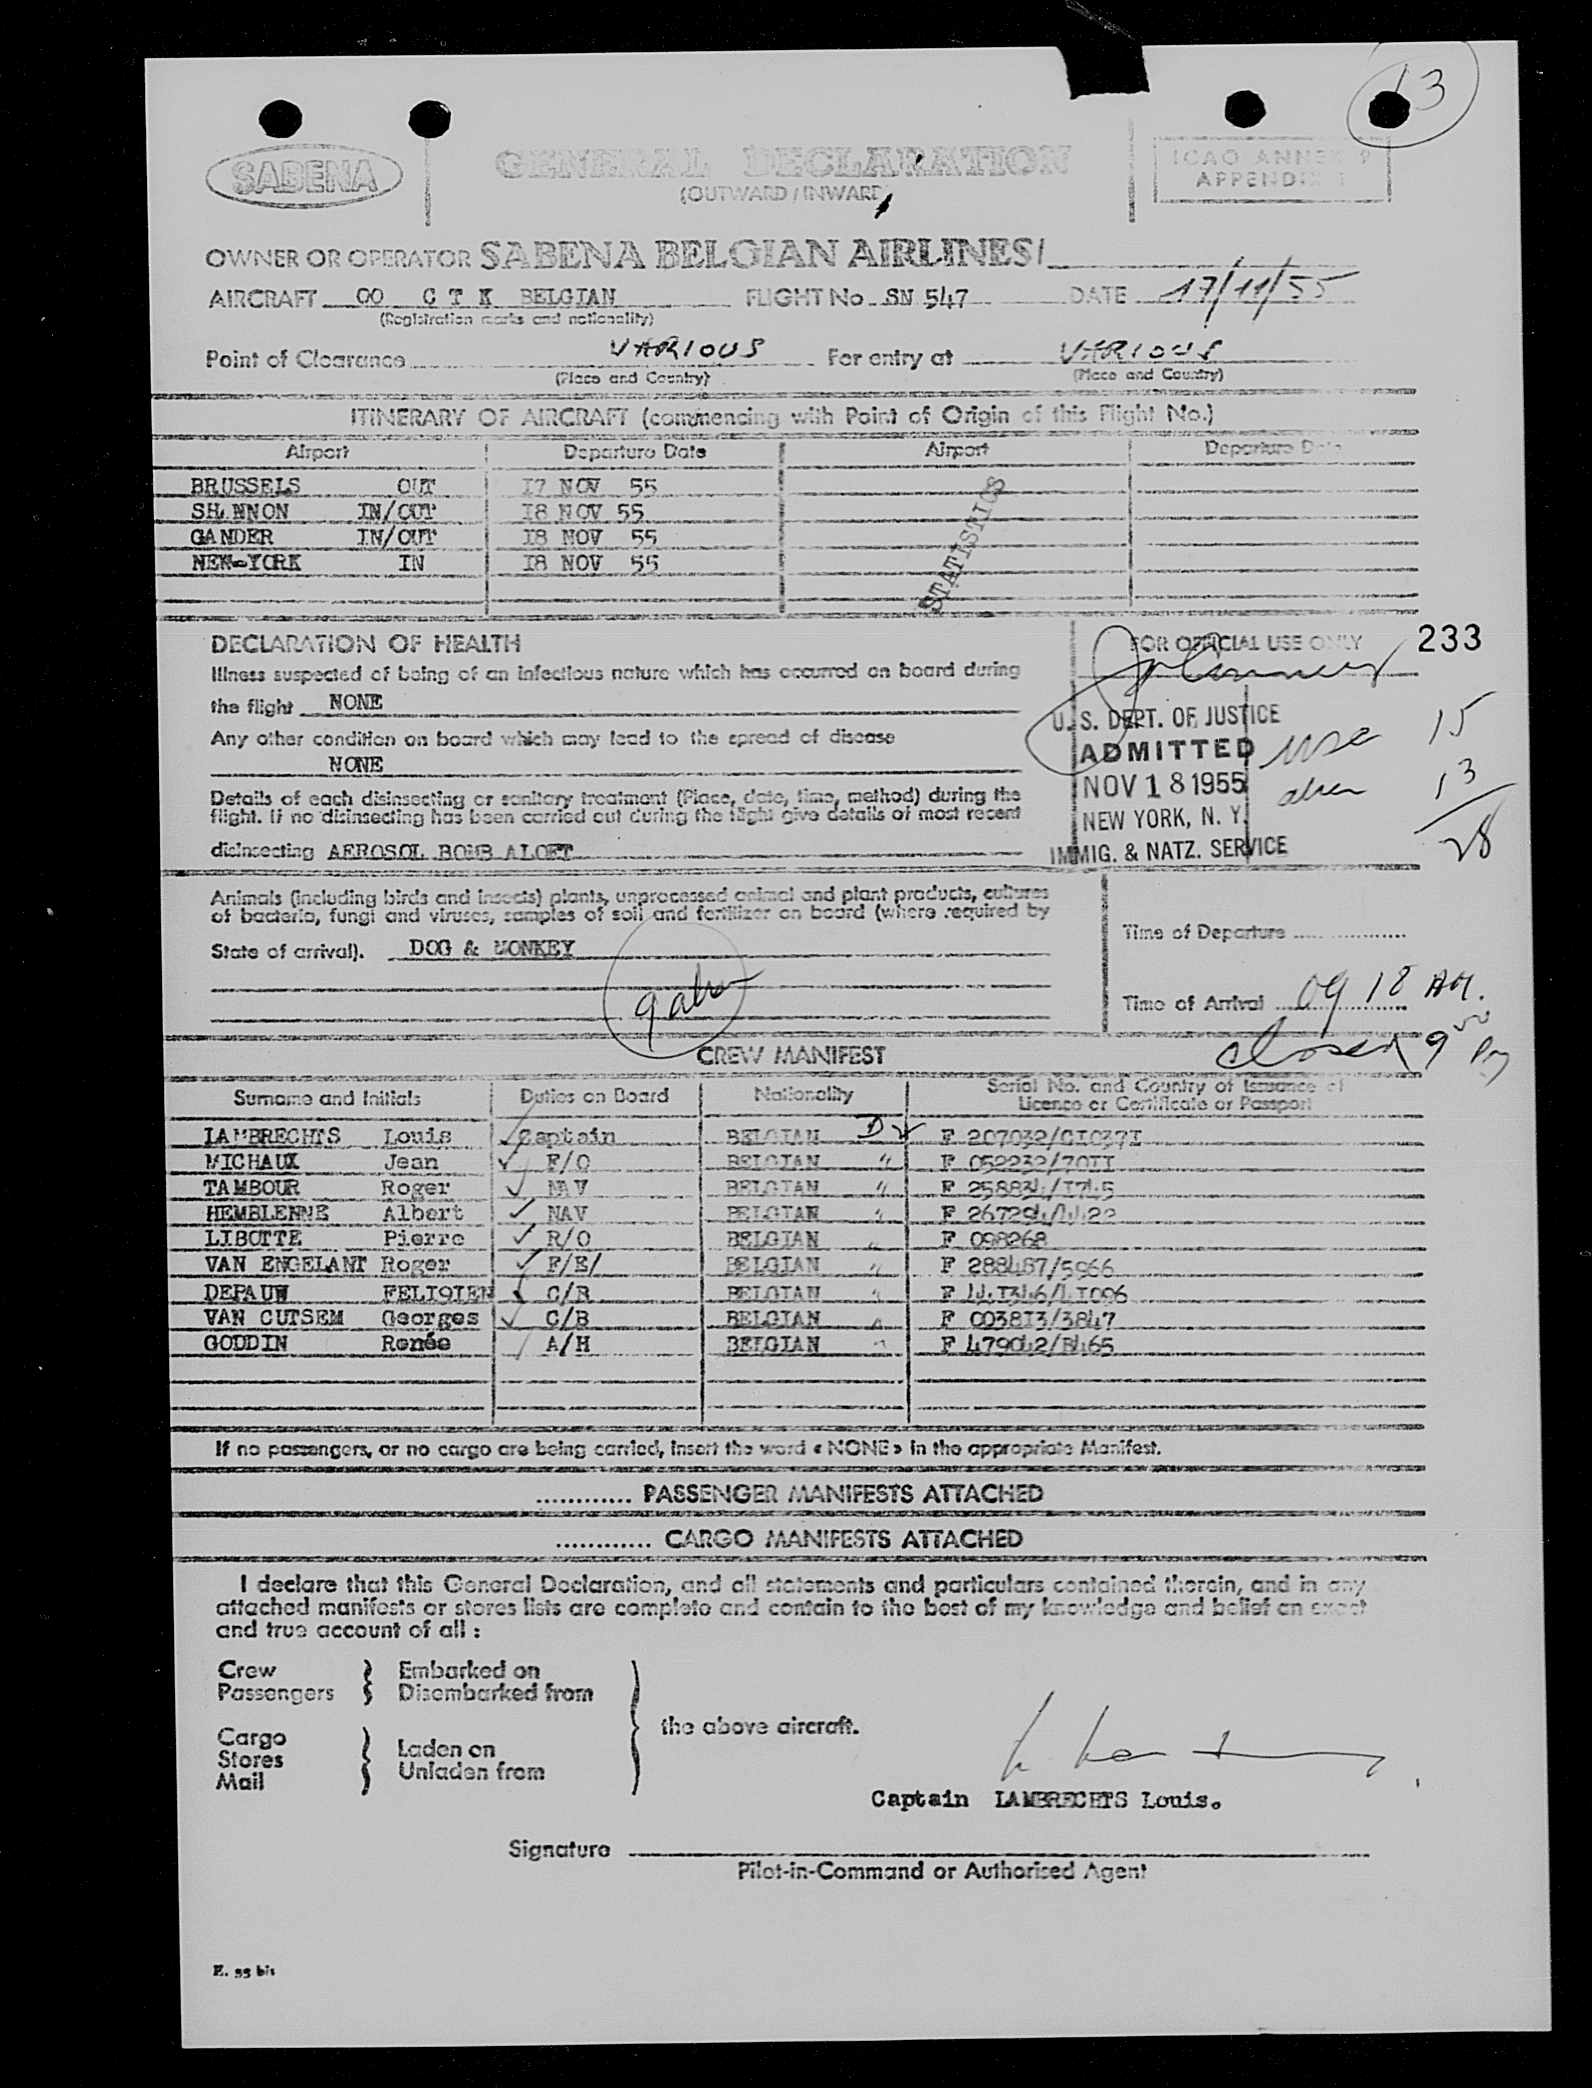 13
SABENA
GENERAL DECLARATION
(OUTWARD / INWARD)
ICAO ANNEX 9
APPENDIX 1
OWNER OR OPERATOR SABENA BELGIAN AIRLINES/
AIRCRAFT OO C T K BELGIAN FLIGHT No. SN 547 DATE 17/11/55
(Registration marks and nationality)
Point of Clearance VARIOUS For entry at VARIOUS
(Place and Country) (Place and Country)
ITINERARY OF AIRCRAFT (commencing with Point of Origin of this Flight No.)
Airport Departure Date Airport Departure Date
BRUSSELS OUT I7 NOV 55
SHANNON IN/OUT I8 NOV 55
GANDER IN/OUT I8 NOV 55
NEW-YORK IN I8 NOV 55
STATISTICS
DECLARATION OF HEALTH
Illness suspected of being of an infectious nature which has occurred on board during
the flight NONE
Any other condition on board which may lead to the spread of disease
NONE
Details of each disinsecting or sanitary treatment (Place, date, time, method) during the
flight. If no disinsecting has been carried out during the flight give details of most recent
disinsecting AEROSOL BOMB ALOFT
FOR OFFICIAL USE ONLY 233
U.S. DEPT. OF JUSTICE
ADMITTED usc 15
NOV 18 1955 alien 13
NEW YORK, N. Y. 28
IMMIG. & NATZ. SERVICE
Animals (including birds and insects) plants, unprocessed animal and plant products, cultures
of bacteria, fungi and viruses, samples of soil and fertilizer on board (where required by
State of arrival). DOG & MONKEY
9 alien
Time of Departure
Time of Arrival 09 18 AM.
closed 9
CREW MANIFEST
Surname and Initials Duties on Board Nationality Serial No. and Country of Issuance of
Licence or Certificate or Passport
LAMBRECHTS Louis Captain BELGIAN D F 207032/CI037I
MICHAUX Jean F/O BELGIAN " F 052232/70II
TAMBOUR Roger NAV BELGIAN " F 258834/I745
HEMBLENNE Albert NAV BELGIAN " F 267294/4422
LIBOTTE Pierre R/O BELGIAN " F 098268
VAN ENGELANT Roger F/E/ BELGIAN " F 288487/5966
DEPAUW FELICIEN C/B BELGIAN " F 44I346/4I096
VAN CUTSEM Georges C/B BELGIAN " F 0038I3/3847
GODDIN Renée A/H BELGIAN " F 479042/B465
If no passengers, or no cargo are being carried, insert the word « NONE » in the appropriate Manifest.
............ PASSENGER MANIFESTS ATTACHED
............ CARGO MANIFESTS ATTACHED
I declare that this General Declaration, and all statements and particulars contained therein, and in any
attached manifests or stores lists are complete and contain to the best of my knowledge and belief an exact
and true account of all :
Crew Embarked on
Passengers Disembarked from
the above aircraft.
Cargo
Stores Laden on
Mail Unladen from
Captain LAMBRECHTS Louis.
Signature
Pilot-in-Command or Authorised Agent
E. 55 bis